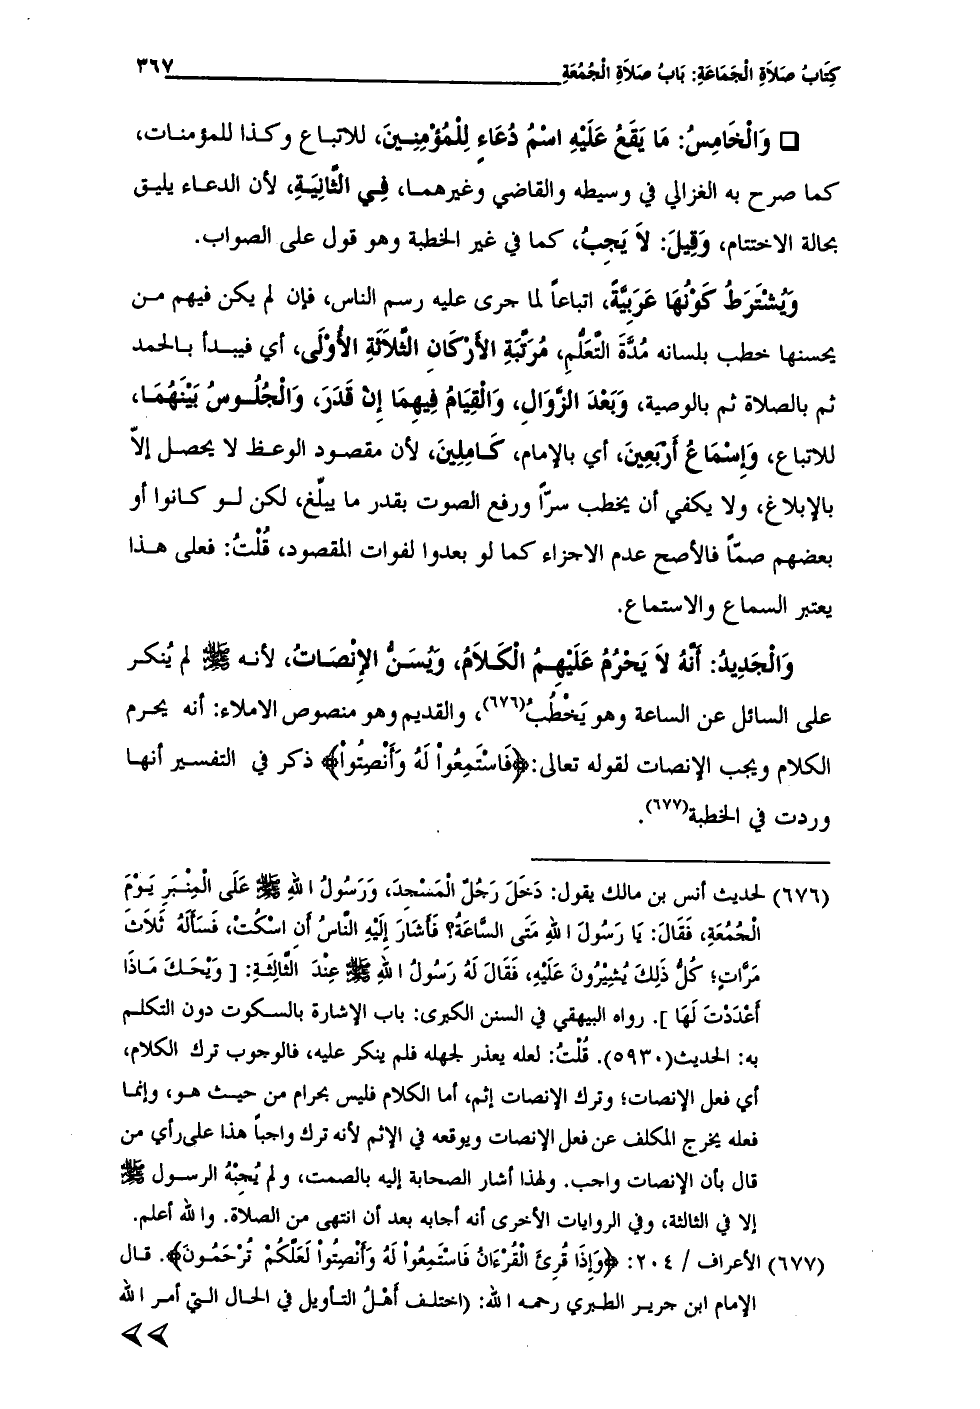 كِتَابُ صَلَاةِ الْجَمَاعَةِ: بَابُ صَلَاةِ الْجُمُعَةِ ٣٦٧
□ وَالْخَامِسُ: مَا يَقَعُ عَلَيْهِ اسْمُ دُعَاءٍ لِلْمُؤْمِنِينَ، للاتباع وكذا للمؤمنات،
كما صرح به الغزالي في وسيطه والقاضي وغيرهما، فِي الثَّانِيَةِ، لأن الدعاء يليق
بحالة الاختتام، وَقِيلَ: لاَ يَجِبُ، كما في غير الخطبة وهو قول على الصواب.
وَيُشْتَرَطُ كَوْنُهَا عَرَبِيَّةً، اتباعاً لما جرى عليه رسم الناس، فإن لم يكن فيهم من
يحسنها خطب بلسانه مُدَّةَ التَّعَلُّمِ، مُرَتَّبَةِ الأَرْكَانِ الثَّلَاثَةِ الأُوْلَى، أي فيبدأ بالحمد
ثم بالصلاة ثم بالوصية، وَبَعْدَ الزَّوَالِ، وَالْقِيَامُ فِيهِمَا إِنْ قَدَرَ، وَالْجُلُوسُ بَيْنَهُمَا،
للاتباع، وَإِسْمَاعُ أَرْبَعِينَ، أي بالإمام، كَامِلِينَ، لأن مقصود الوعظ لا يحصل إلاّ
بالإبلاغ، ولا يكفي أن يخطب سرّاً ورفع الصوت بقدر ما يبلّغ، لكن لو كانوا أو
بعضهم صمّاً فالأصح عدم الاجزاء كما لو بعدوا لفوات المقصود، قُلْتُ: فعلى هذا
يعتبر السماع والاستماع.
وَالْجَدِيدُ: أَنَّهُ لاَ يَحْرُمُ عَلَيْهِمُ الْكَلَامُ، وَيُسَنُّ الإِنْصَاتُ، لأنه ﷺ لم يُنكر
على السائل عن الساعة وهو يَخْطُبُ(٦٧٦)، والقديم وهو منصوص الاملاء: أنه يحرم
الكلام ويجب الإنصات لقوله تعالى:﴿فَاسْتَمِعُواْ لَهُ وَأَنْصِتُواْ﴾ ذكر في التفسير أنها
وردت في الخطبة(٦٧٧).
(٦٧٦) لحديث أنس بن مالك يقول: دَخَلَ رَجُلٌ الْمَسْجِدَ، وَرَسُولُ اللهِ ﷺ عَلَى الْمِنْبَرِ يَوْمَ
الْجُمُعَةِ، فَقَالَ: يَا رَسُولَ اللهِ مَتَى السَّاعَةُ؟ فَأَشَارَ إِلَيْهِ النَّاسُ أَنِ اسْكُتْ، فَسَأَلَهُ ثَلَاثَ
مَرَّاتٍ؛ كُلُّ ذَلِكَ يُشِيْرُونَ عَلَيْهِ، فَقَالَ لَهُ رَسُولُ اللهِ ﷺ عِنْدَ الثَّالِثَةِ: [ وَيْحَكَ مَاذَا
أَعْدَدْتَ لَهَا ]. رواه البيهقي في السنن الكبرى: باب الإشارة بالسكوت دون التكلم
به: الحديث(٥٩٣٠). قُلْتُ: لعله يعذر لجهله فلم ينكر عليه، فالوجوب ترك الكلام،
أي فعل الإنصات؛ وترك الإنصات إثم، أما الكلام فليس بحرام من حيث هو، وإنما
فعله يخرج المكلف عن فعل الإنصات ويوقعه في الإثم لأنه ترك واجباً هذا على رأي من
قال بأن الإنصات واجب. ولهذا أشار الصحابة إليه بالصمت، ولم يُجِبْهُ الرسول ﷺ
إلا في الثالثة، وفي الروايات الأخرى أنه أجابه بعد أن انتهى من الصلاة. والله أعلم.
(٦٧٧) الأعراف / ٢٠٤: ﴿وَإِذَا قُرِئَ الْقُرْءَانُ فَاسْتَمِعُواْ لَهُ وَأَنْصِتُواْ لَعَلَّكُمْ تُرْحَمُونَ﴾. قال
الإمام ابن جرير الطبري رحمه الله: (اختلف أَهْلُ التأويل في الحال التي أمر الله